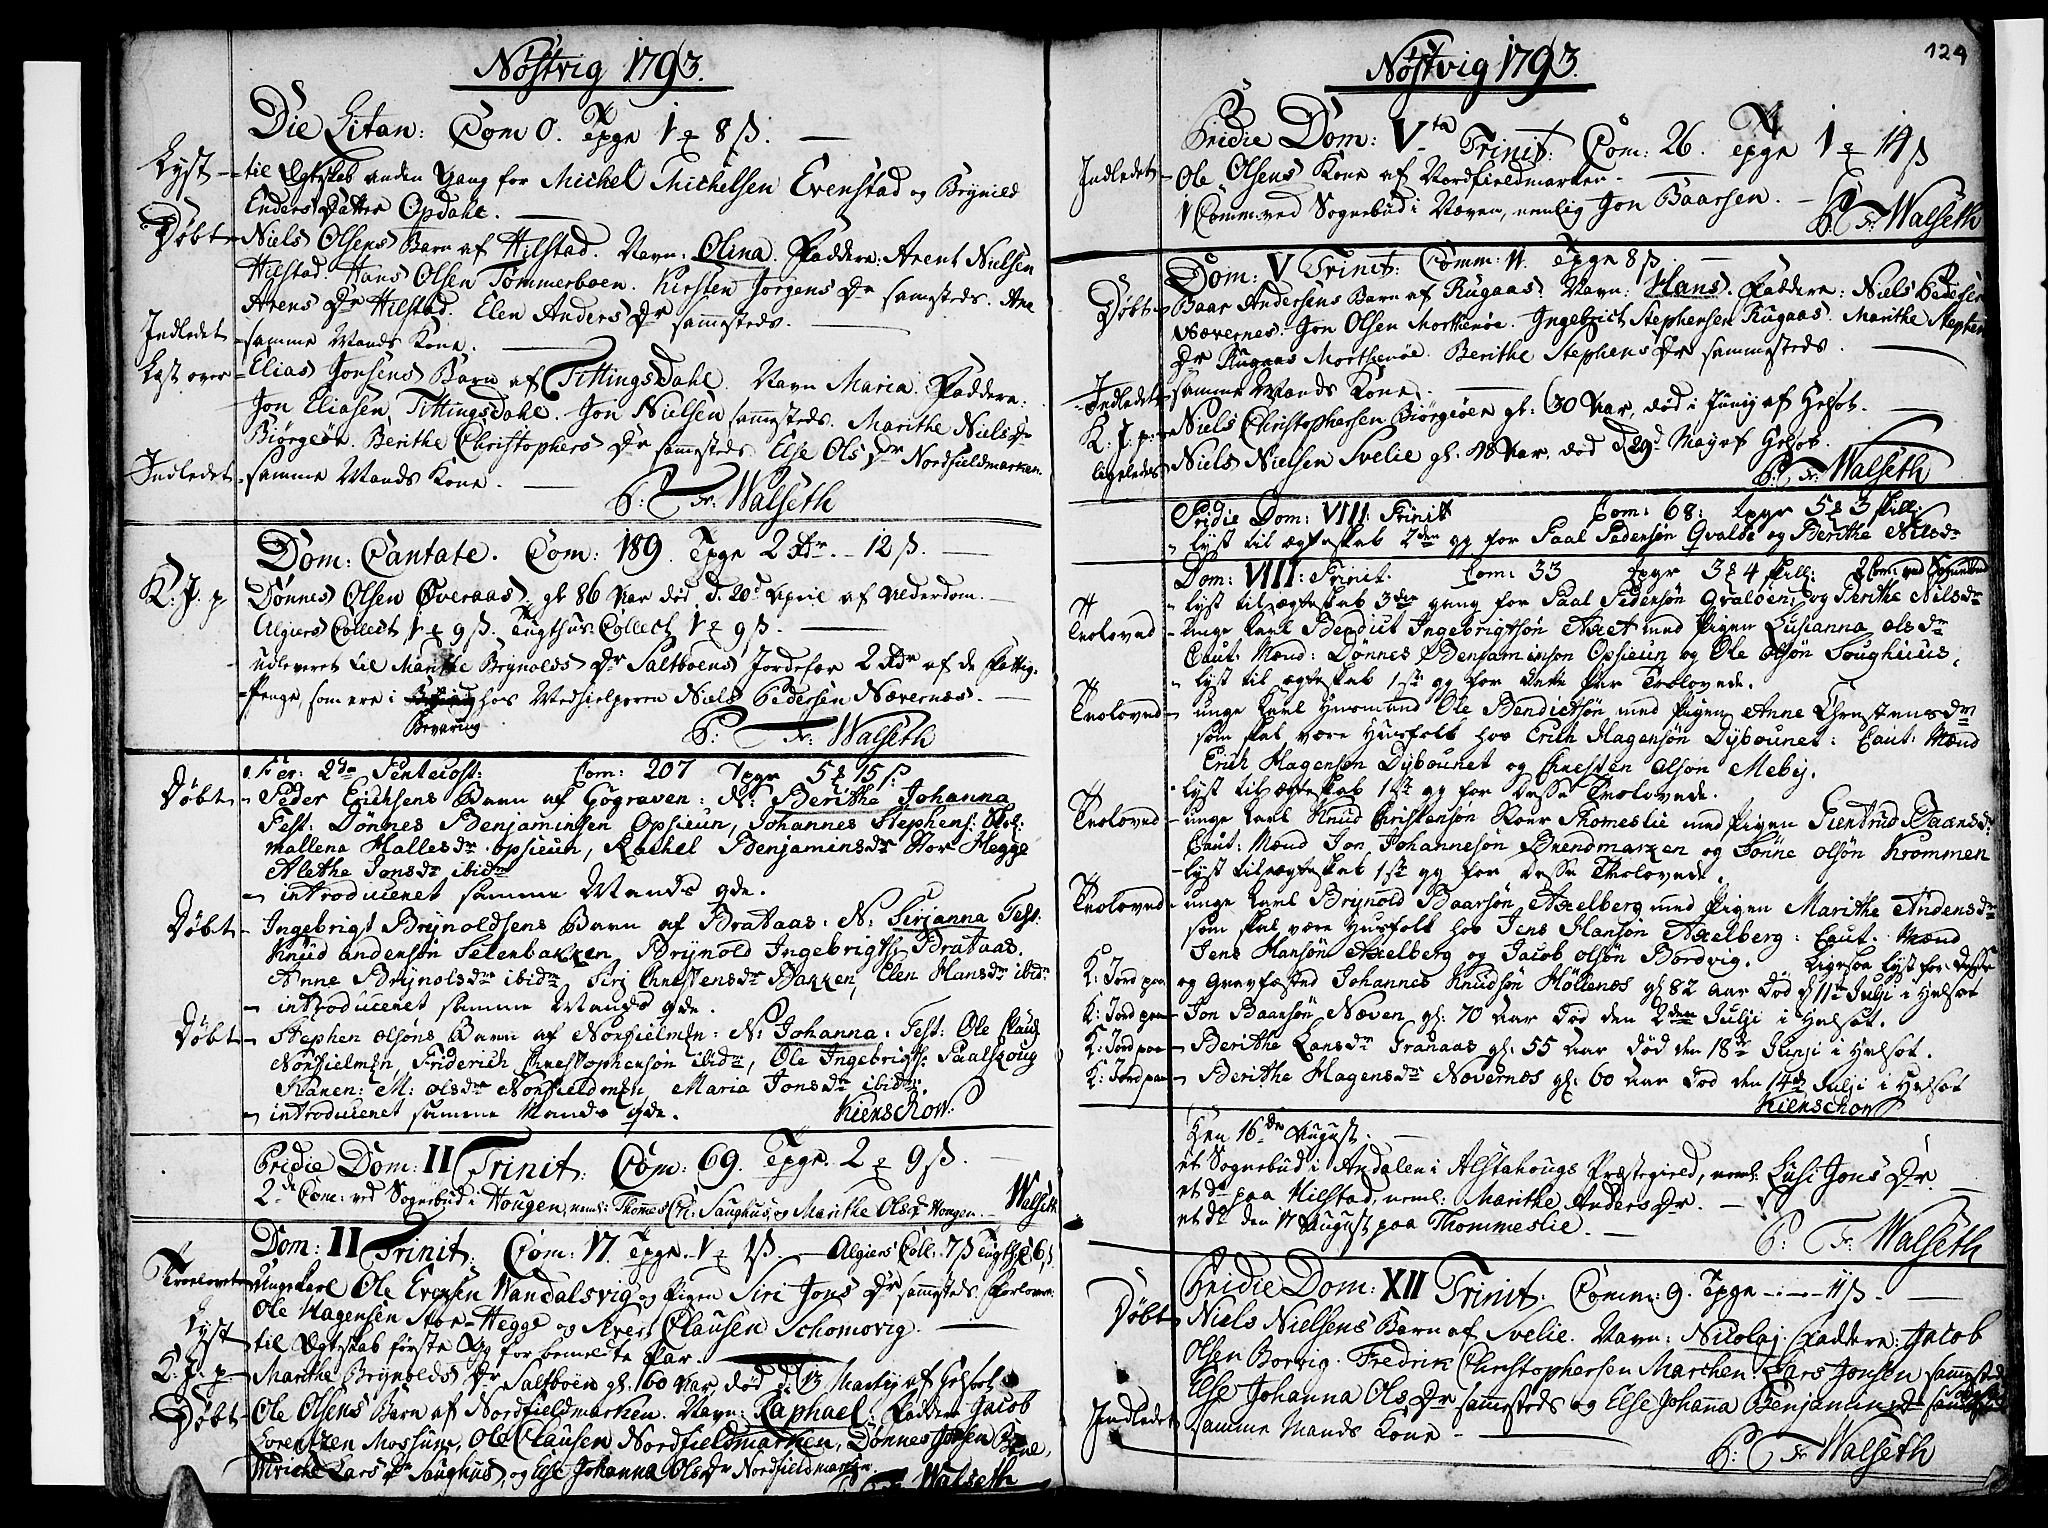 Nøstvig 1793.
Die Litan: Com 0. Tpgr 1 8 ß.
Lyst til Ægteskab anden Gang for Michel Michelsen Evenstad og Brynild
Enders Datter Opdahl.
Døbt Niels Olsens Barn af Hilstad. Navn: Olina. Faddere: Arent Nielsen
Hilstad. Hans Olsen Tømmerboen. Kirsten Jørgens Dr sammesteds. Ane
Arens Dr Hilstad. Elen Anders Dr sammesteds.
Indledet samme Mands Kone.
Læst over Elias Jonsens Barn af Tittingsdahl. Navn Maria. Faddere:
Jon Eliasen Tittingsdahl. Jon Nielsen sammesteds. Marithe Niels Dr
Biørgeøe. Berithe Christophers Dr sammesteds. Else Ols Dr Nordfieldmarken.
Indledet samme Mands Kone.
P: Fr: Walseth
Dom: Cantate. Com: 189. Tpgr 2 Rdr. 12 ß.
K: J. p Dønnes Olsen Øveraas. gl 86 Aar død d. 20d April af Alderdom.
Algiers Collect 1 9 ß. Tugthus Collect 1 9 ß.
udleveret til Marithe Brynolds Dr Saltboens Jordefær 2 Rdr af de Fattig-
Penge, som ere i hos Medhielperen Niels Pedersen Nævernæs.
Bevaring
P: Fr: Walseth
Fer: 2da Pentecost: Com: 207 Tpgr 5 15 ß
Døbt Peder Erichsens Barn af Gograven: N: Berithe Johanna
Test: Dønnes Benjaminsen Opsieun, Johannes Stephens:
Mallena Hallesdr opsieun, Rachel Benjaminsdr Stor Hegge
Alethe Jonsdr ibidm
introduceret samme Mands qde.
Døbt Ingebrigt Brynoldsens Barn af Brataas: N: Sirianna Test:
Knud andersøn Selenbakken, Brynold Ingebrigts: Brataas.
Anne Brynolsdr ibidm Siri Christensdr Bakken, Elen Hansdr ibidm
introduceret samme Mands qde.
Døbt Stephen olsøns Barn af Norfielmrn: N: Johanna: Test: Ole Claus
Norfielmrn, Friderich Christophersøn ibidm, Ole Ingebrigts: Saalskoug
Karen: M: olsdr Norfieldmrn Maria Jonsdr ibidm.
introduceret samme Mands qde. Kierschow:
Pridie Dom: II Trinit: Com: 69. Tpgr. 2 9 ß.
2de Com: ved Sognebud i Hougen, neml: Thomes Saughus, og Marithe Olsdr Hougen. Walseth
Dom: II Trinit: Com: 17. Tpgr. 1 1 ß. Algiers Coll: 7 ß Tugth: 6 ß
Troelovet Ungekarl Ole Evensen Vandalsvig og Pigen Siri Jons Dr sammesteds. Forlover:
Ole Hagensen Stor-Hegge og Iver Clausen Schomovig.
Lyst til Ægteskab første Gg for bemeldte Par.
K: J. p Marithe Brynolds Dr Saltboen gl. 60 Aar død d. 13 Martij af Helsot
Døbt Ole Olsens Barn af Nordfieldmarken. Navn: Raphael. Faddere: Jacob
Lorentzen Mosjuen, Ole Clausen Nordfieldmarken, Dønnes Jonsen
Lars Dr Saughus, og Else Johanna Ols Dr Nordfieldmarken
Walseth
Nøstvig 1793.
124
Pridie Dom: Vta Trinit: Com: 26. Tpgr 1 14 ß
Indledet Ole Olsens Kone af Nordfieldmarken.
1 Comm: ved Sognebud i Næven, nemlig Jon Baarsen.
P: Fr: Walseth
Dom: V Trinit: Comm: 11. Tpgr 8 ß
Døbt Baar Andersens Barn af Rugaas. Navn: Hans. Faddere: Niels Pedersen
Nævernes. Jon Olsen Morthenøe. Ingebrict Stephensen Rugaas. Marithe Stephens
Dr Rugaas Morthenøe. Berithe Stephens Dr sammesteds.
Indledet samme Mands Kone.
K: J. p: Niels Christophersen Biørgeøen gl: 30 Aar, død i Junij af Helsot.
ligeledes Niels Nielsen Svelie gl: 18 Aar, død d 29d Maj af Helsot.
P: Fr: Walseth
Pridie Dom: VIII: Trinit Com: 68: tpgr 5 3 skill:
lyst til ægteskab 2den gg for Paal Pedersøn Qvaløe og Berithe Nilsdr
Dom: VIII: Trinit. Com: 33 tpgr 3 4 skill: 2 Com: ved Sognebud
lyst til ægteskab 3die gang for Paal Pedersøn Qvaløen, og Berithe Nilsdr
Troloved unge karl Bendict Ingebrigtsøn Axet med Pigen Lusianna olsdr
Caut: Mænd: Dønnes Benjaminsøn Opsieun og Ole olsøn Soughuus.
lyst til ægteskab 1ste gg for dette Par Trolovede.
Troloved unge karl Husmand Ole Bendictsøn med Pigen Anne Christensdr
som skal være Husfolk hos Erich Hagensøn Dybounet: Caut: Mænd
Erich Hagensøn Dybounet og Christen olsøn Meby.
lyst til ægteskab 1ste gg for desse Trolovede.
Troloved unge karl Knud Christensøn Roer Thomeslie med Pigen Gientrud Baarsdr
Caut: Mænd Jon Johannesøn Brendmarken og Tønne olsøn Krommen
lyst til ægteskab 1ste gg for desse Trolovede.
Troloved unge karl Brynold Baarsøn Axelberg med Pigen Marithe Andersdr
som skal være Husfolk hos Jens Hansøn Axelberg: Caut: Mænd
Jens Hansøn Axelberg og Jacob olsøn Bordvig. Ligesaa lyst for desse
K: Jord paa og Gravfæsted Johannes Knudsøn Høllenes gl 82 aar død d 11te Julji i Helsot
K: Jord paa Jon Baarsøn Næven gl: 70 aar død den 2den Julji i Helsot.
K: Jord paa Berithe Larsdr Granaas gl: 55 aar død den 18de Junji i Helsot.
K: Jord paa Berithe Hagensdr Nævernes gl: 60 aar død den 14de Julji i Helsot
Kierschow
Den 16de August.
et Sognebud i Andalen i Alstahougs Præstegield, neml: Lusi Jons Dr.
et do paa Hilstad, neml: Marithe Anders Dr.
et do den 17 August paa Thommeslie.
P: Fr: Walseth
Pridie Dom: XII Trinit: Comm: 9. Tpgr 11 ß.
Døbt Niels Nielsens Barn af Svelie. Navn: Nicolaj. Faddere: Jacob
Olsen Borvig. Fredrik Christophersen Marchen. Lars Jonsen sammesteds
Else Johanna Ols Dr sammesteds og Else Johanna Benjamins Dr sammesteds
Indledet samme Mands Kone
P: Fr: Walseth